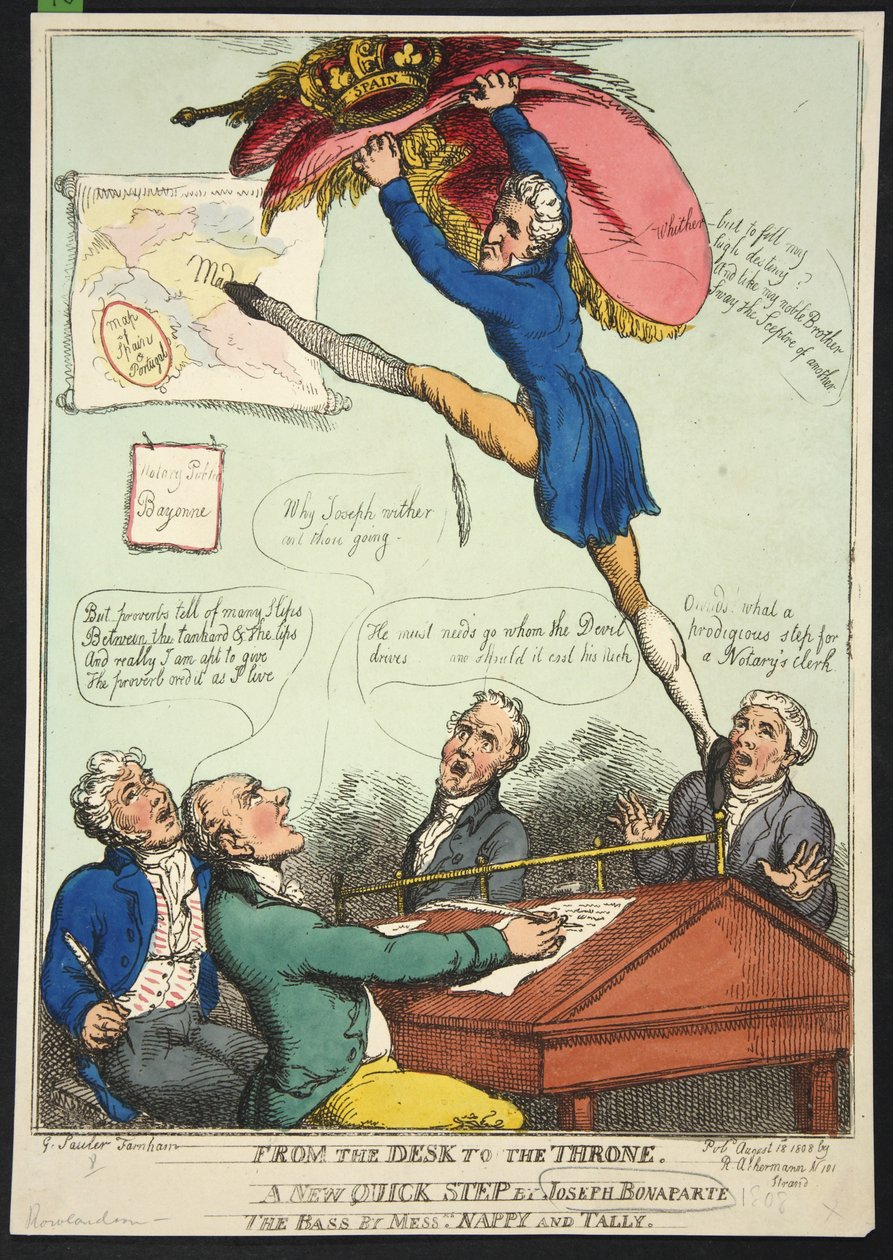 SPAIN
Whither but to fill my
high destiny?
And like my noble Brother
Sway the Sceptre of another.
Mad
Map
of
Spain
&
Portugal
Notary Public
Bayonne
Why Joseph wither
art thou going -
But proverbs tell of many Slips
Between the tankard & the lips
And really I am apt to give
The proverb credit as I live
He must needs go whom the Devil
drives and should it cost his Neck
Ounds! what a
prodigious step for
a Notary's Clerk.
G. Sauler Farnham
Pubd August 1808 by
R. Ackermann N 101
Strand
FROM THE DESK TO THE THRONE.
A NEW QUICK STEP BY JOSEPH BONAPARTE
THE BASS BY MESSRS NAPPY AND TALLY.
Rowlandson
1808